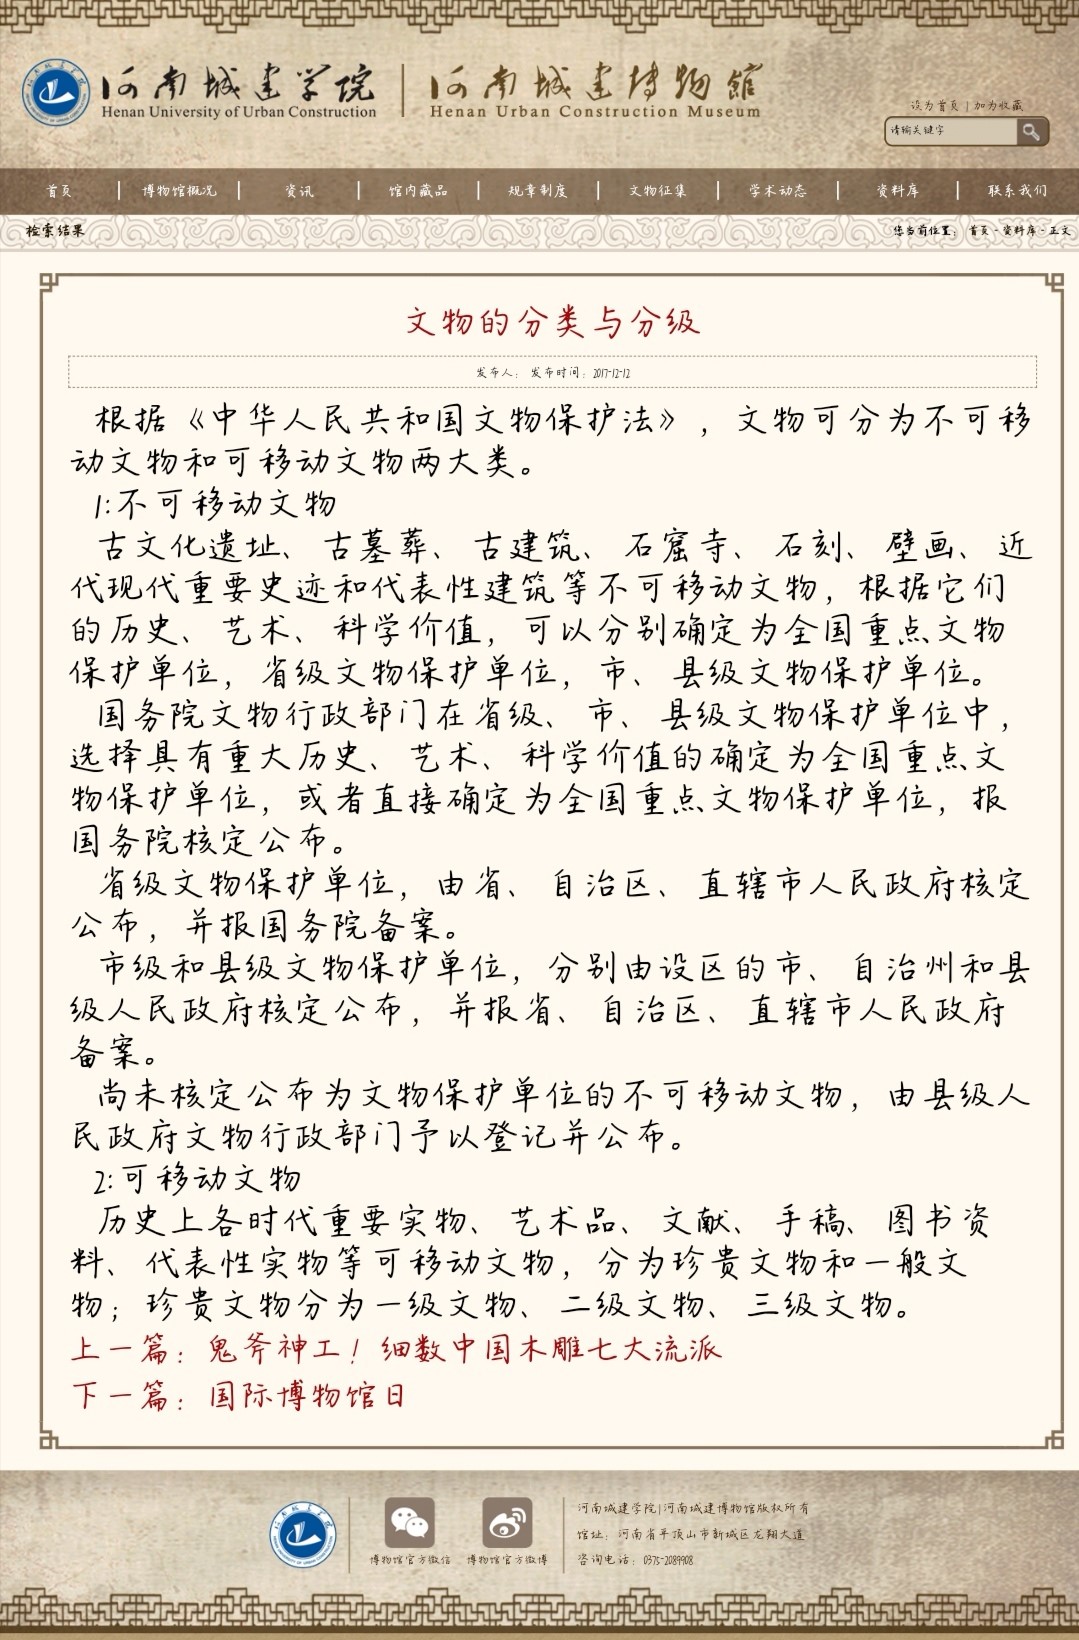 河南城建学院
Henan University of Urban Construction
河南城建博物馆
Henan Urban Construction Museum
设为首页 | 加为收藏
请输关键字
首页 | 博物馆概况 | 资讯 | 馆内藏品 | 规章制度 | 文物征集 | 学术动态 | 资料库 | 联系我们
检索结果
您当前位置： 首页 - 资料库 - 正文
文物的分类与分级
发布人： 发布时间：2017-12-12
根据《中华人民共和国文物保护法》，文物可分为不可移
动文物和可移动文物两大类。
1:不可移动文物
古文化遗址、古墓葬、古建筑、石窟寺、石刻、壁画、近
代现代重要史迹和代表性建筑等不可移动文物，根据它们
的历史、艺术、科学价值，可以分别确定为全国重点文物
保护单位，省级文物保护单位，市、县级文物保护单位。
国务院文物行政部门在省级、市、县级文物保护单位中，
选择具有重大历史、艺术、科学价值的确定为全国重点文
物保护单位，或者直接确定为全国重点文物保护单位，报
国务院核定公布。
省级文物保护单位，由省、自治区、直辖市人民政府核定
公布，并报国务院备案。
市级和县级文物保护单位，分别由设区的市、自治州和县
级人民政府核定公布，并报省、自治区、直辖市人民政府
备案。
尚未核定公布为文物保护单位的不可移动文物，由县级人
民政府文物行政部门予以登记并公布。
2:可移动文物
历史上各时代重要实物、艺术品、文献、手稿、图书资
料、代表性实物等可移动文物，分为珍贵文物和一般文
物；珍贵文物分为一级文物、二级文物、三级文物。
上一篇：鬼斧神工！细数中国木雕七大流派
下一篇：国际博物馆日
博物馆官方微信
博物馆官方微博
河南城建学院|河南城建博物馆版权所有
馆址：河南省平顶山市新城区龙翔大道
咨询电话：0375-2089908